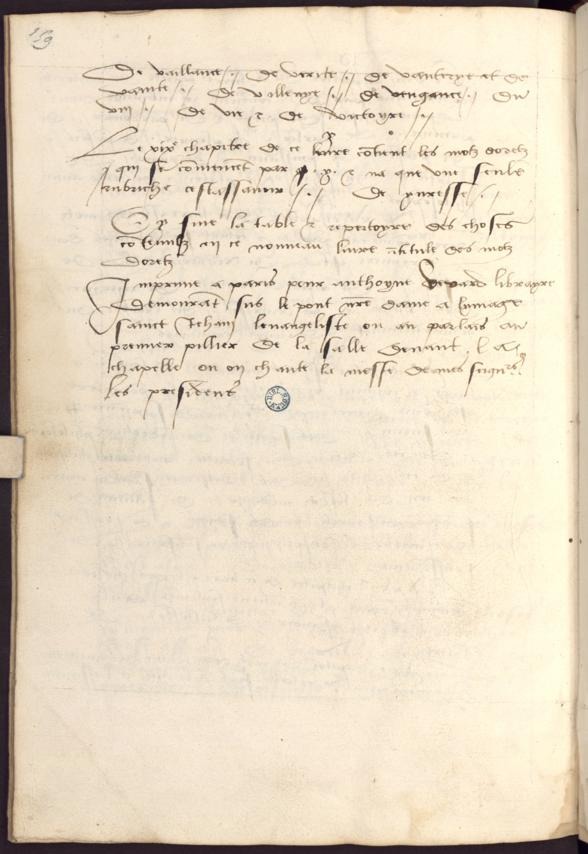 159
De vaillance // De verite // De vanterye et de
vanite // De villenye // De vengance // Du
vin // De vie & De victoyre //
Le xixe chapitre de ce livre cõtient les motz doretz
qui se cõmencent par y & na que une seule
rubriche cestassavoir // De yvresse //
Cy fine la table & repertoyre des choses
cõtenues en ce nouveau livre ītitule des motz
Doretz
Imprime a paris pour anthoyne verard libraire
Demourat sus le pont nr̃e dame a lymage
sainct Jehan levangeliste ou au parlais au
premier pillier de la salle devant la
chapelle ou on chante la messe de mes seign̄rs
les presidens